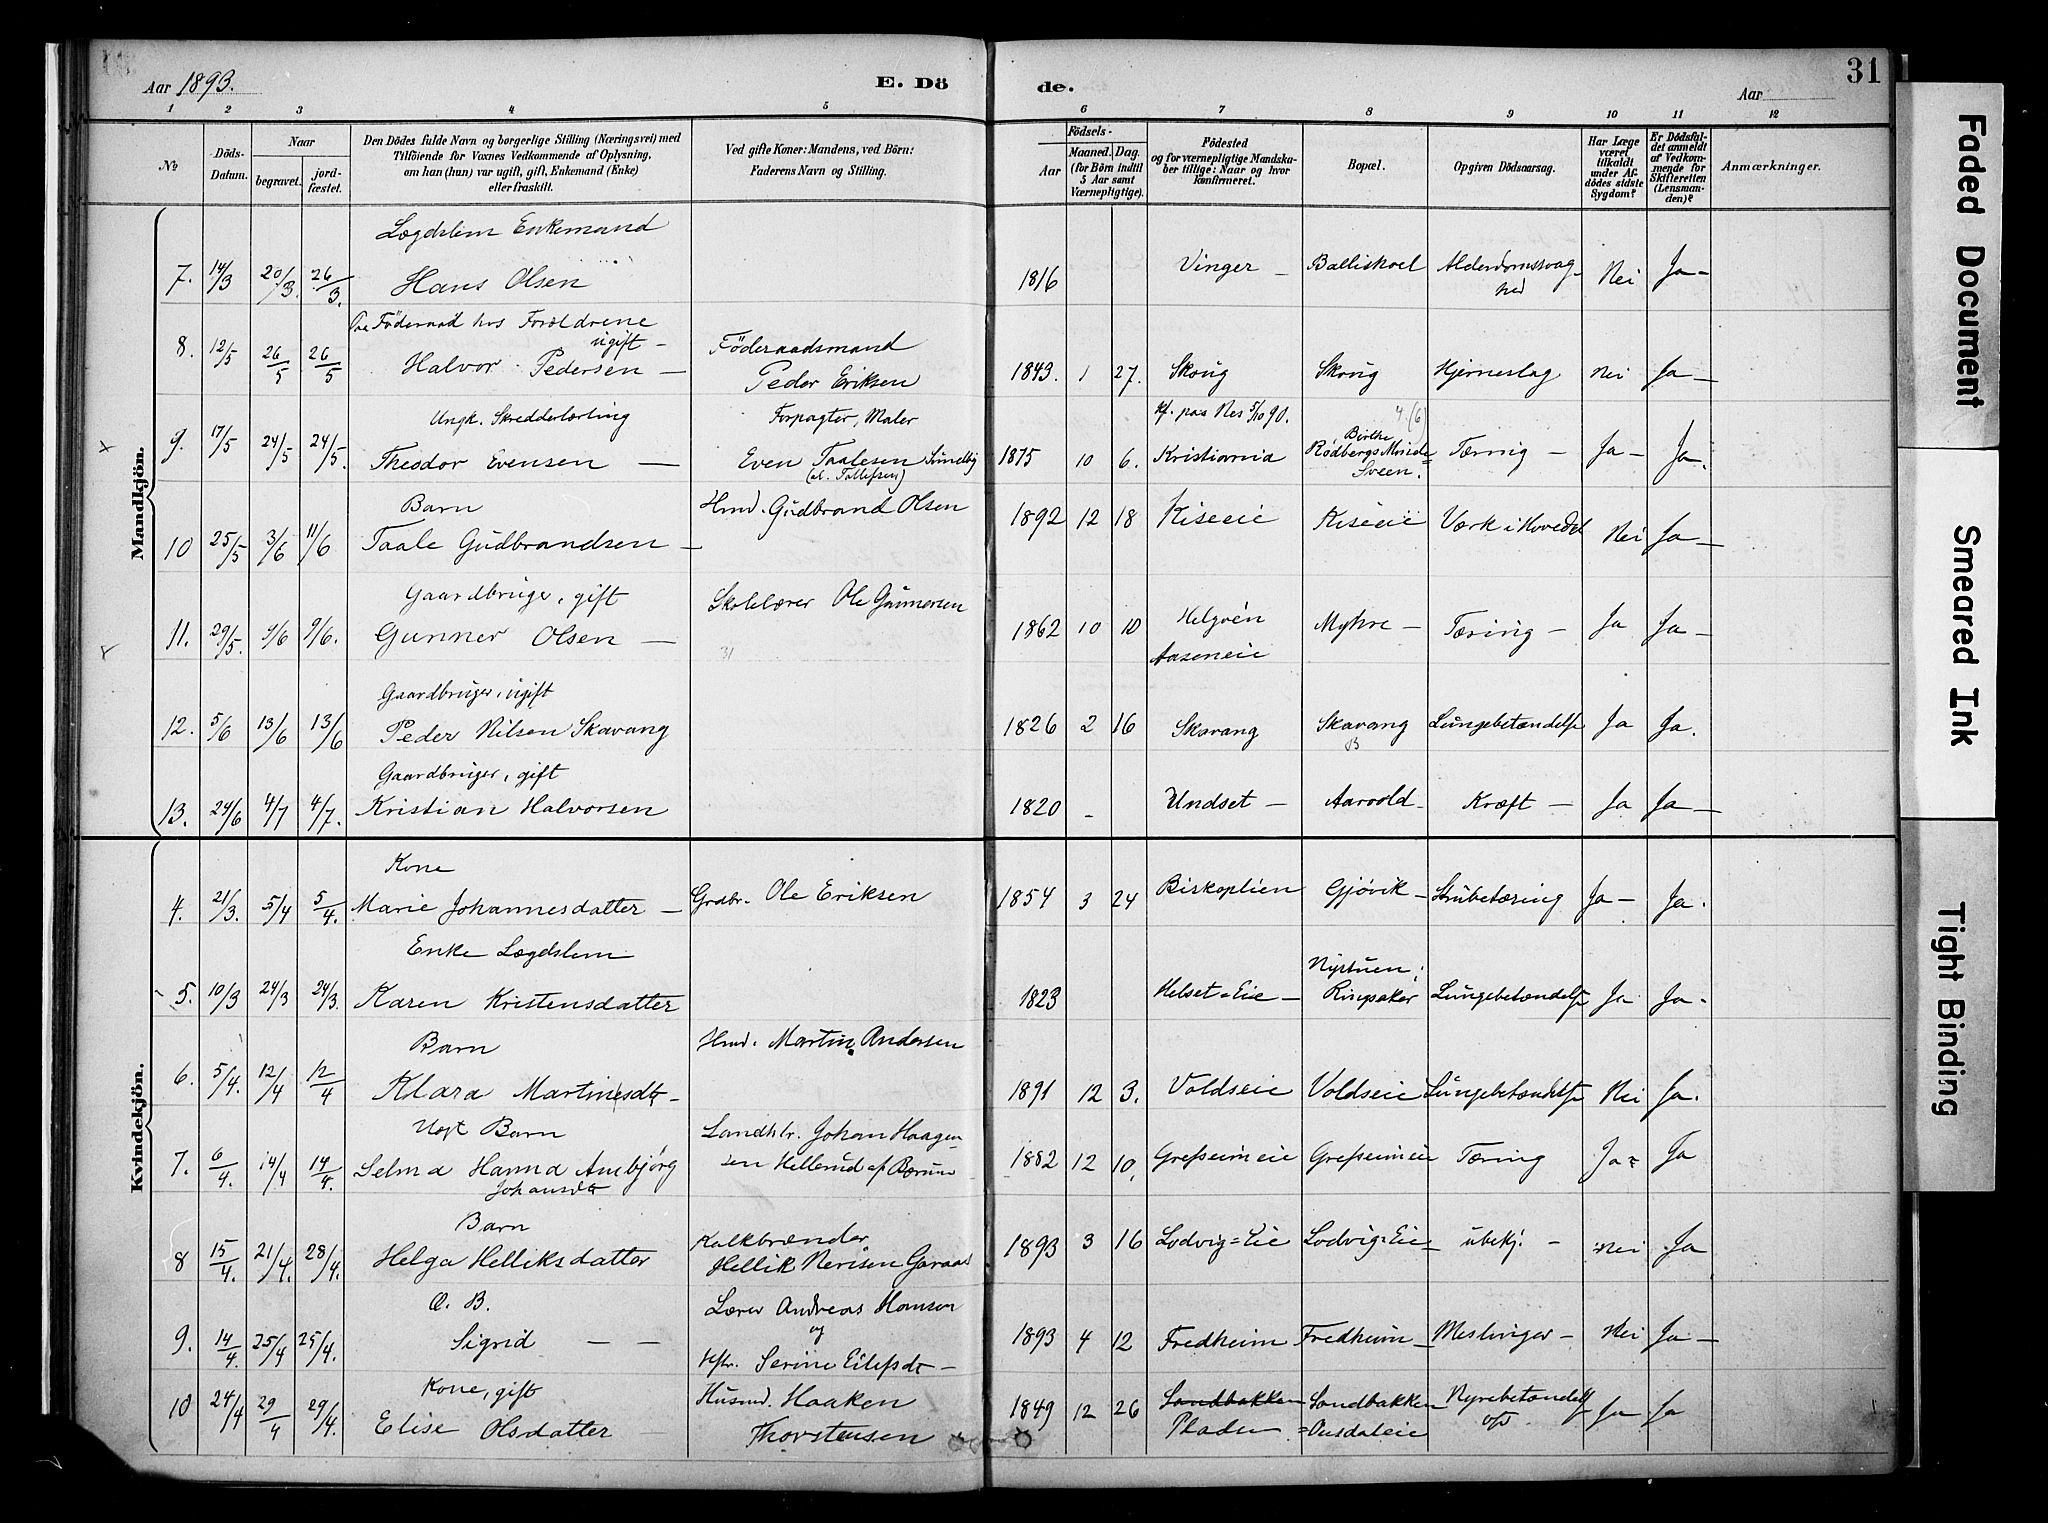 Aar 1893.
E. Dö
de.
Aar
31
1 2 3 4 5 6 7 8 9 10 11 12
No
Döds-Datum.
Naar
begravet.
jord-fæstet.
Den Dödes fulde Navn og borgerlige Stilling (Næringsvei) med Tilföiende for Voxnes Vedkommende af Oplysning, om han (hun) var ugift, gift, Enkemand (Enke) eller fraskilt.
Ved gifte Koner: Mandens, ved Börn: Faderens Navn og Stilling.
Födsels-
Aar
Maaned. Dag.
(for Börn indtil 5 Aar samt Værnepligtige).
Födested og for værnepligtige Mandskaber tillige: Naar og hvor konfirmeret.
Bopæl.
Opgiven Dödsaarsag.
Har Læge været tilkaldt under Afdödes sidste Sygdom?
Er Dödsfaldet anmeldt af Vedkommende for Skifteretten (Lensmanden)?
Anmærkninger.
Mandkjön.
Lægdslem Enkemand
7. 14/3 20/3 26/3. Hans Olsen 1816 Vinger - Balliskoel Alderdomssvaghed Nei Ja -
Paa Föderaad hos Forældrene ugift -
8. 12/5 26/5 26/5 Halvor Pedersen - Föderaadsmand Peder Eriksen 1843. 1 27. Skoug Skoug Hjerneslag Nei Ja -
Ungk. Skrædderlærling
Forpagter, Maler
kf. paa Nes 5/10 90.
4. (6)
9. 17/5 24/5 24/5. Theodor Evensen - Even Taalesen Sundby (el. Tollefsen) 1875 10 6. Kristiania Birthe Rodbergs Minde = Sveen. Tæring - Ja - Ja.
Barn
10 25/5 3/6 11/6 Taale Gudbrandsen - Hmd. Gudbrand Olsen 1892 12 18 Kiseeie Kiseeie Værk i Hovedet Nei Ja -
Gaardbruger, gift
11. 29/5. 9/6 9/6. Gunner Olsen - Skolelærer Ole Gunnersen 1862 10 10 Helgöen Aaseneie Myhre - Tæring - Ja Ja -
31
Gaardbruger, ugift
12. 5/6 13/6 13/6 Peder Nilsen Skavang 1826 2 16 Skavang Skavang Lungebetændelse Ja Ja.
Gaardbruger, gift
13. 24/6 4/7 4/7. Kristian Halvorsen 1820 - Undset - Aarvold - Kræft - Ja Ja -
Kvindekjön.
Kone
4. 21/3. 5/4 5/4. Marie Johannesdatter - Grdbr. Ole Eriksen 1854 3 24 Biskoplien Gjövik - Strubetæring Ja - Ja.
Enke Lægdslem
5. 10/3 24/3 24/3. Karen Kristensdatter 1823 Helset = Eie - Nystuen; Ringsaker Lungebetændelse Ja Ja -
Barn
6. 5/4. 12/4 12/4 Klara Martinesdt - Hmd. Martin Andersen 1891 12 3. Voldseie Voldseie Lungebetændelse Nei Ja.
Uegt Barn
7. 6/4. 14/4 14/4. Selma Hanna Ambjörg Johansdt Landhdlr. Johan Haagensen Hellerud af Bærum 1882 12 10. Grefseimeie Grefseimeie Tæring Ja = Ja
Barn
8 15/4. 21/4. 28/4. Helga Helliksdatter Kalkbrænder Hellik Nerisen Garaas 1893 3 16 Lodvig = Eie Lodvig = Eie = ubekj. - Nei Ja
Æ. B.
9. 14/4. 25/4 25/4. Sigrid - - Lærer Andreas Hansen og Hstr. Serine Eilefsdt - 1893 4 12 Fredheim Fredheim - Meslinger - Nei Ja -
Kone, gift
10 24/4 29/4 29/4. Elise Olsdatter Husmd. Haaken Thorstensen 1849 12 26 Sandbakken Pladsen Sandbakken = Ousdaleie Nyrebetændelse Ja Ja
Faded Document
Smeared Ink
Tight Binding